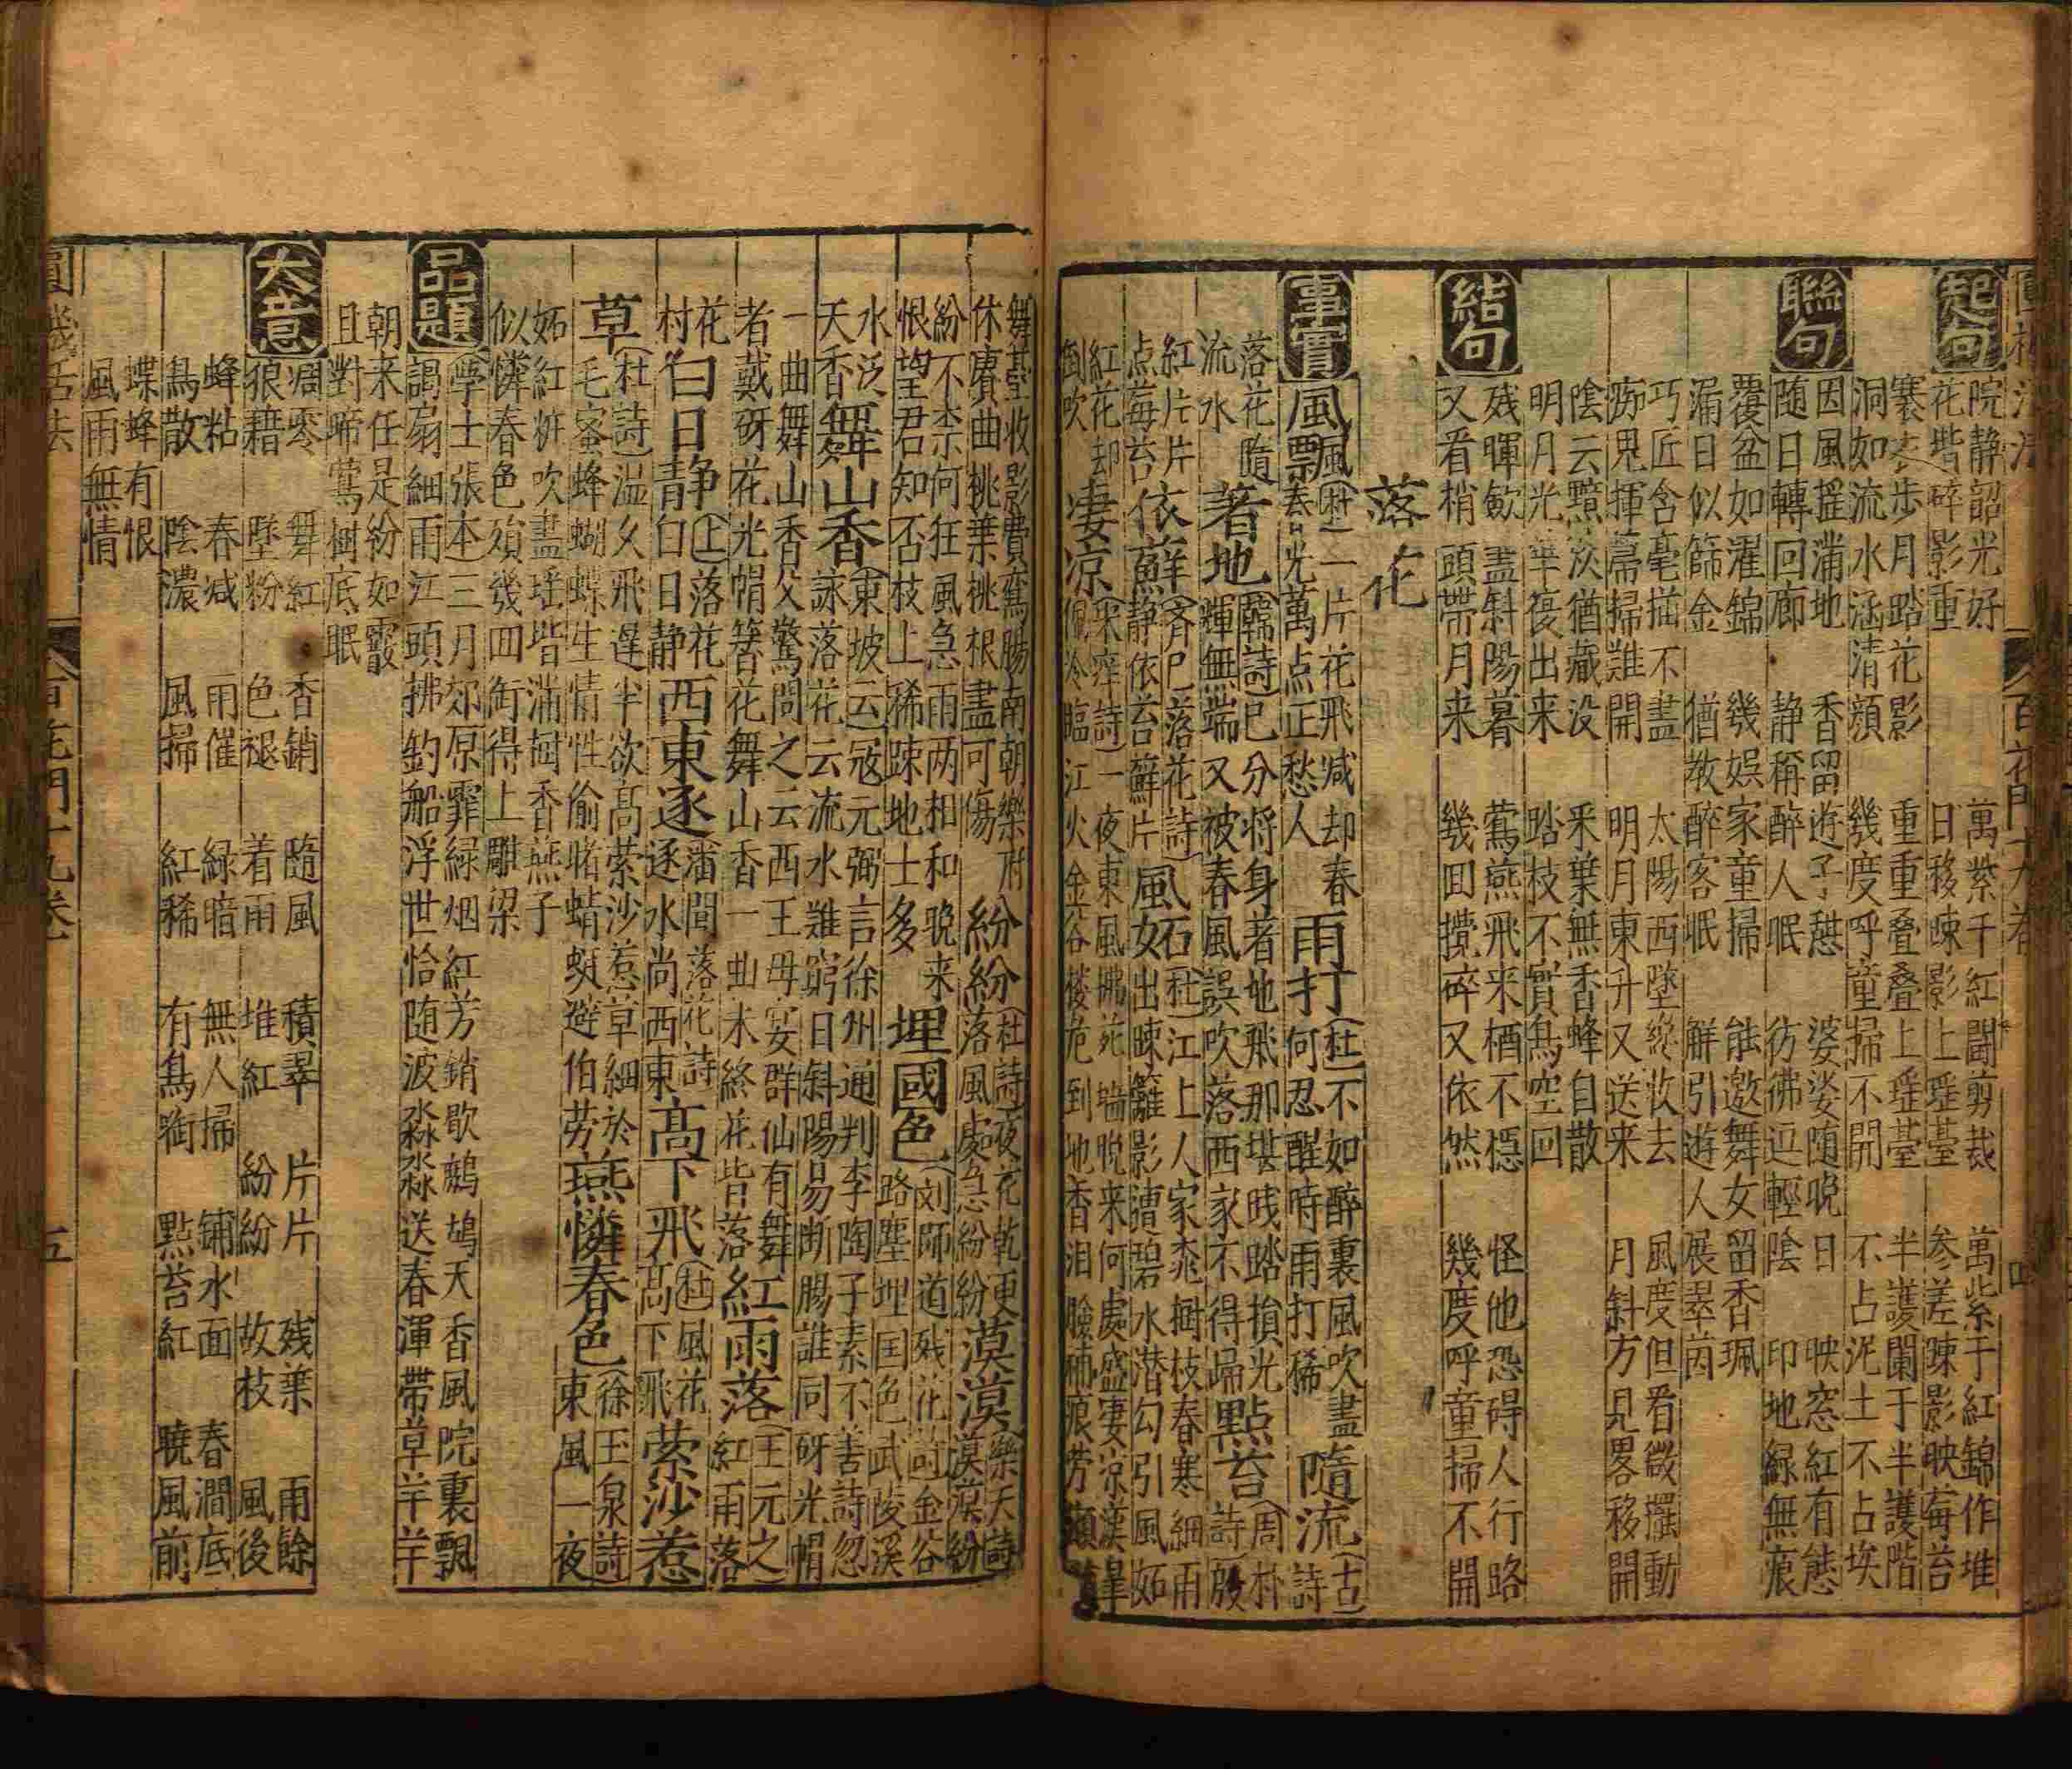 起句
院静韶光好 萬紫千紅闘剪裁 萬紫千紅錦作堆
花堦碎影重 日移踈影上瑶臺 参差踈影映莓苔
褰衣步月踏花影 重重叠叠上瑶臺 半護闌干半護階
洞如流水涵清 幾度呼童掃不開 不占泥土不占埃
聯句
因風摇蒲地 香留遊子憇 婆娑随晚日 映窓紅有態
随日轉回廊 静稱醉人眠 彷彿逗輕陰 印地緑無痕
覆盆如濯錦 幾娱家童掃 能邀舞女留香珮
漏日似篩金 猶教醉客眠 解引遊人展翠茵
巧匠含毫描不盡 太陽西墜縱收去 風度但看微擺動
痴児揮箒掃難開 明月東升又送来 月斜方見畧移開
陰云黯淡猶藏没 采葉無香蜂自散
明月光華復出来 踏枝不實鳥空回
結句
残暉歛盡斜陽暮 鶯燕飛来栖不穩 怪他恐碍人行路
又看梢頭帶月来 幾回攪碎又依然 幾度呼童掃不開
落花
事實
風飄 (杜)一片花飛减却春風飄萬点正愁人
雨打 (杜)不如醉裏風吹盡何忍醒時雨打稀
隨流 (古詩)落花隨流水
著地 (韓詩)已分将身著地飛那堪踐踏損光輝無端又被春風誤吹落西家不得歸
點苔 (周朴詩)紅片片点莓苔
依蘚 (齐己落花詩)静依苔蘚片
風女石 (杜)江上人家桃樹枝春寒細雨出踈籬影遭碧水潜勾引風妬紅花却倒吹
凄凉
舞臺收影費鸞腸南朝樂府休賡曲桃葉桃根盡可傷
紛紛 (杜詩)夜花乾更落風處急紛紛
漠漠 樂天詩漠漠紛紛不柰何狂風急雨两相和晚来恨望君知否枝上稀踈地上多
埋國色 (刘師道残花詩)金谷路塵埋国色武陵溪水泛天香
舞山香 (東坡云)冦元弼言徐州通判李陶子素不善詩忽詠落花云流水難窮日斜陽易断腸誰同砑光帽一曲舞山香父驚問之云西王母宴群仙有舞者戴砑花光帽簪花舞山香一曲未終花皆落
紅雨落 (王元之)紅雨落花村
白日静 (上)落花白日静
西東逐 (潘閬落花詩)逐水尚西東
高下飛 (杜)風花高下飛
縈沙惹草 (杜詩)溢久飛遅半欲高縈沙惹草細於毛蜜蜂蝴蝶生情性偷睹蜻蜓避伯劳
燕憐春色 (徐玉泉詩)東風一夜妬紅粧吹盡瑶堦滿樹香燕子似憐春色殞幾回衔得上雕梁
品題
(學士張本)三月郊原霏緑烟紅芳銷歇鷓鴣天香風院裏飄謁扇細雨江頭拂釣船浮世恰随波淼淼送春渾帶草羊羊
朝来任是紛如霰且對啼鶯樹底眠
大意
凋零 舞紅 香銷 隨風 積翠 片片 残葉 雨餘
狼藉 墜粉 色褪 着雨 堆紅 紛紛 故枝 風後
蜂粘 春减 雨催 緑暗 無人掃 鋪水面 春澗底
鳥散 陰濃 風掃 紅稀 有鳥銜 點苔紅 曉風前
蝶蜂有恨
風雨無情
百花門十九卷
五